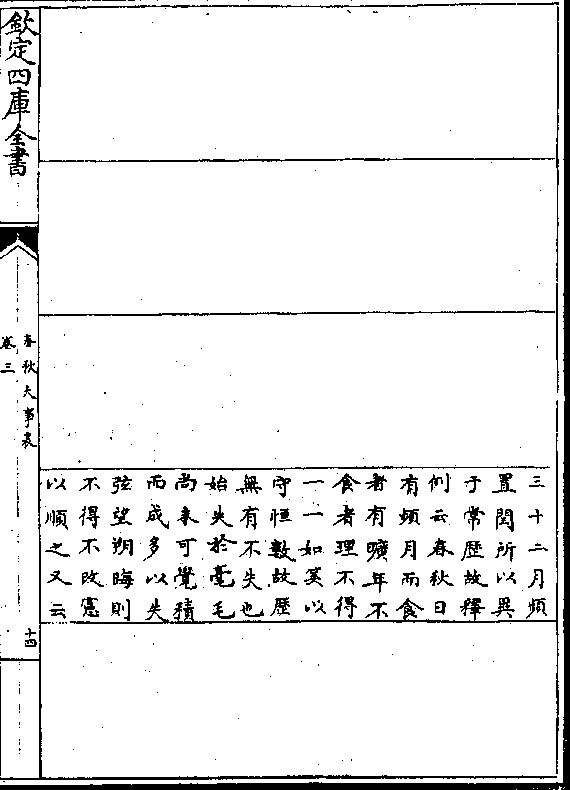 三十二月頻
置閏所以異
于常歴故釋
例云春秋日
有頻月而食
者有曠年不
食者理不得
一一如筭以
守恒數故歴
無有不失也
始失於毫毛
尚未可覺積
而成多以失
弦望朔晦則
不得不改憲
以順之又云
欽定四庫全書
春秋大事表
卷三
十四